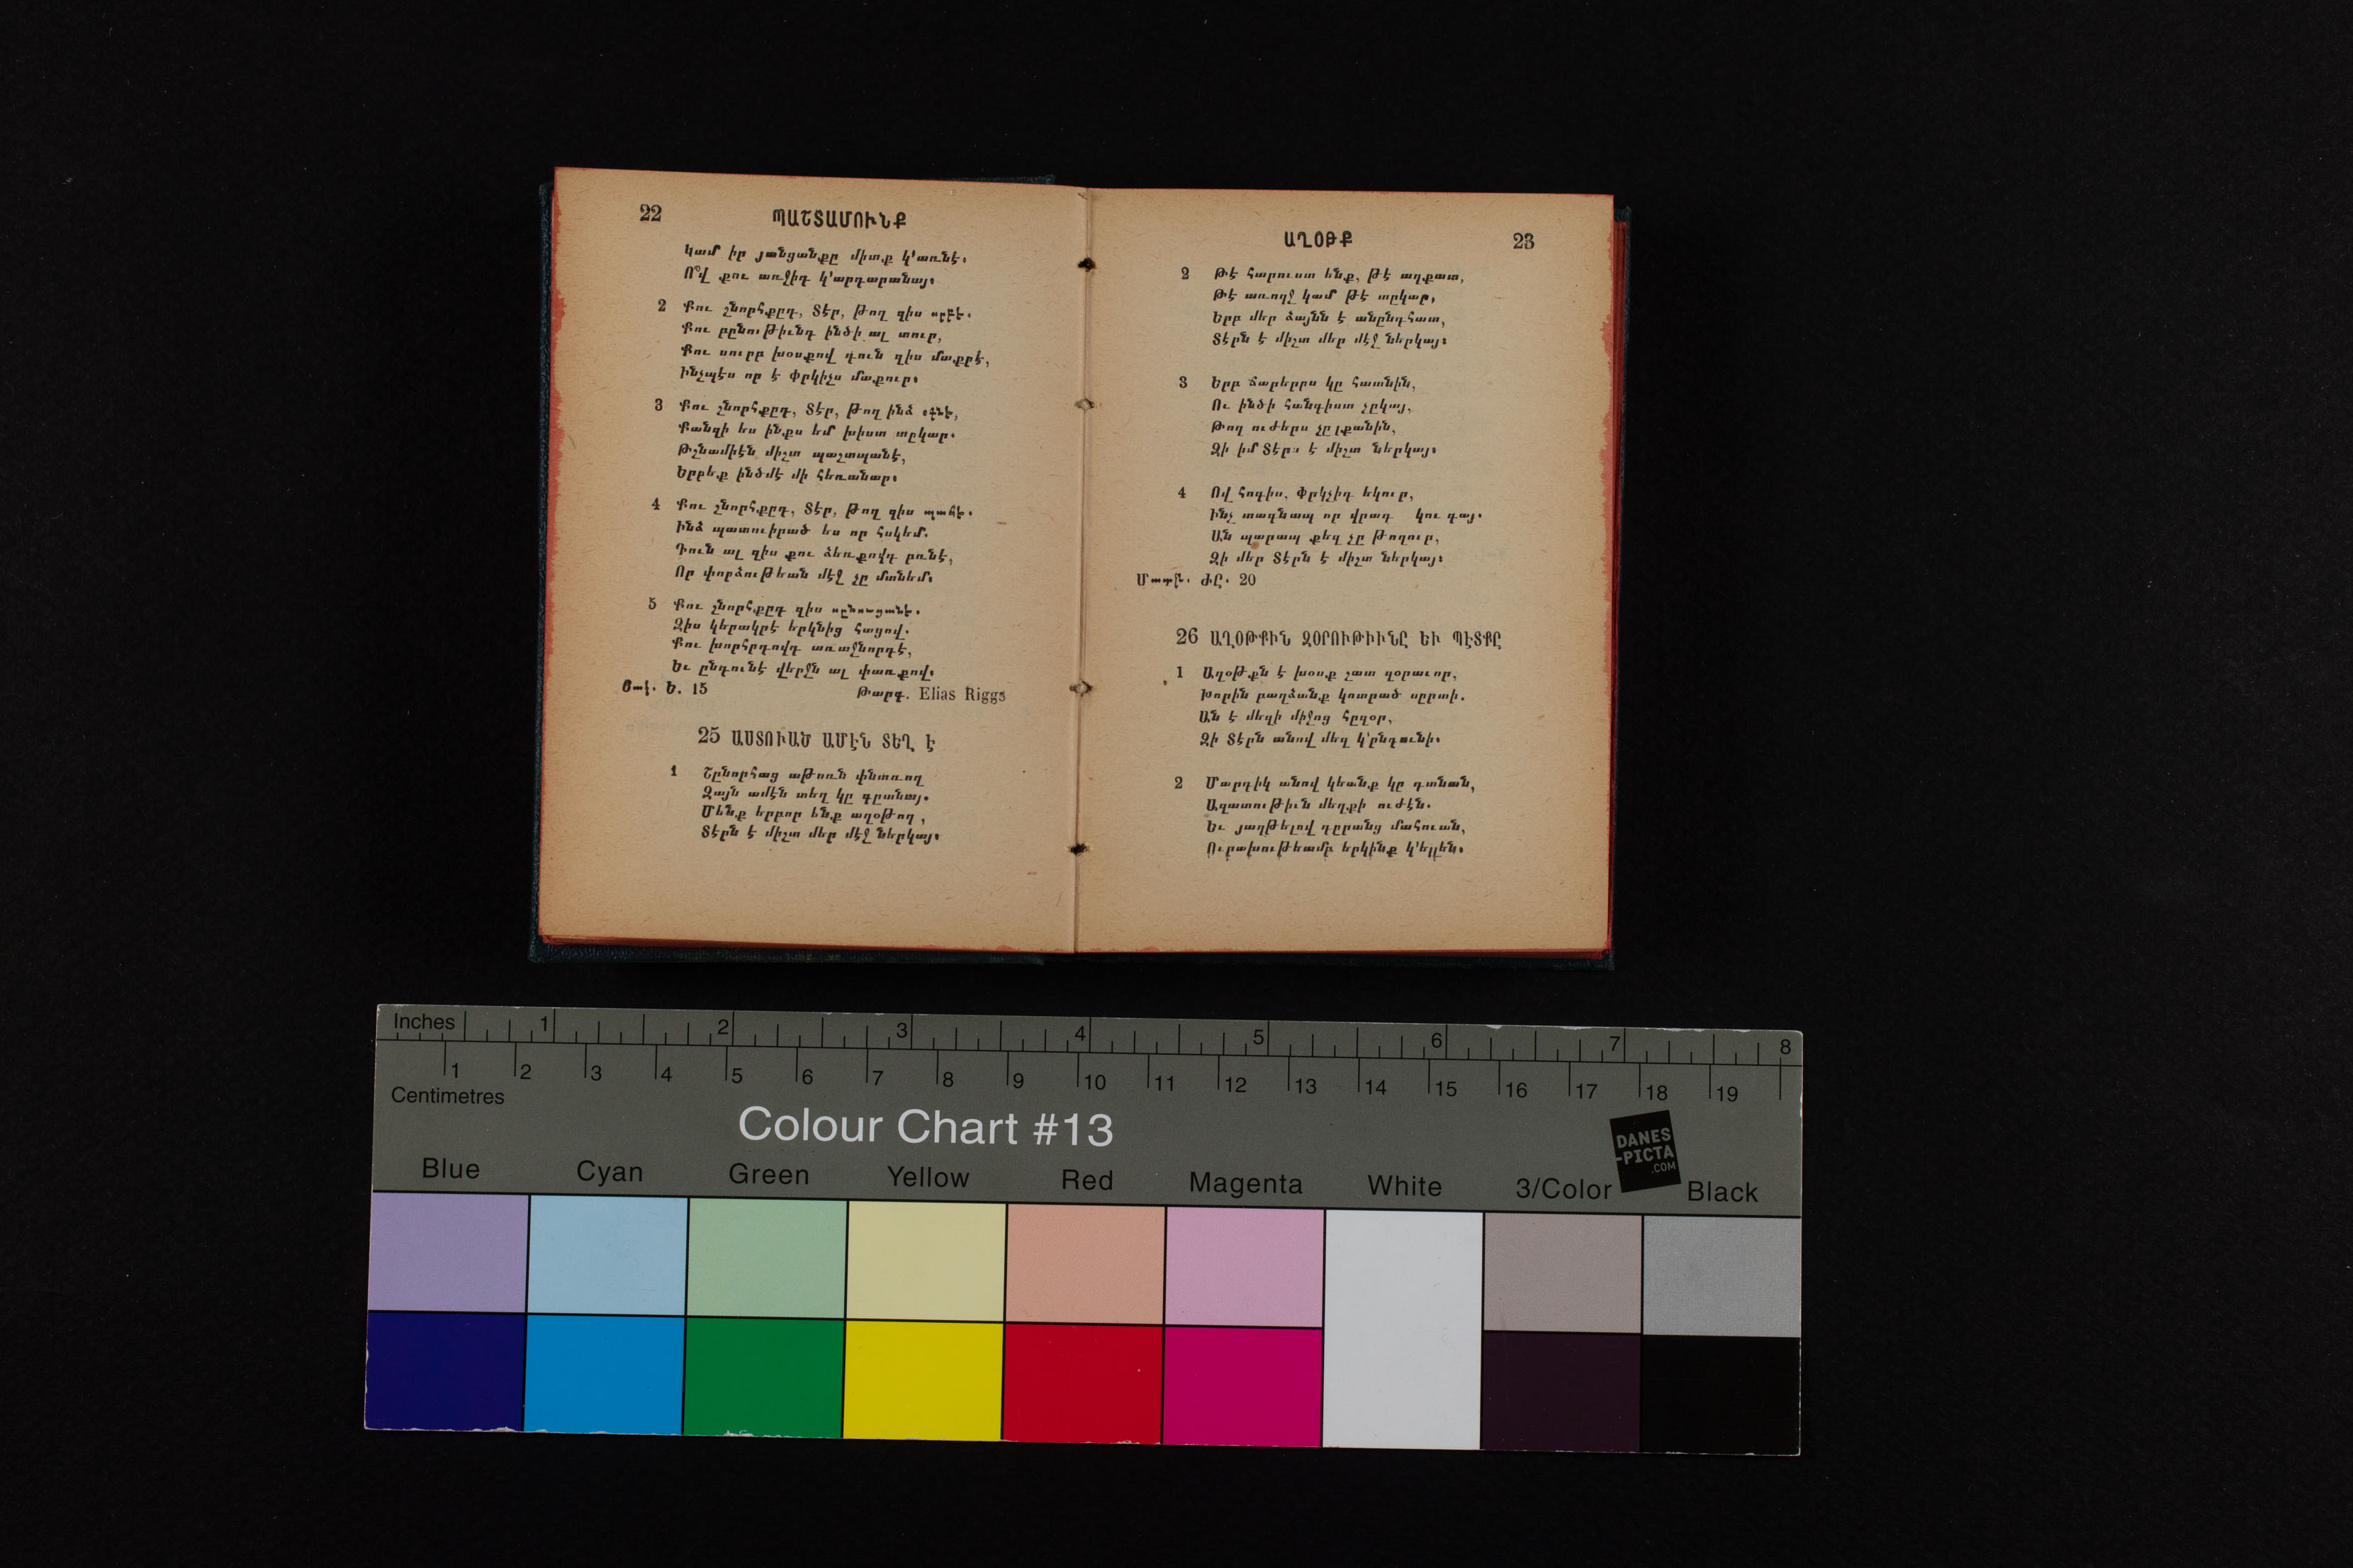 22
ՊԱՇՏԱՄՈՒՆՔ
Կամ իր յանցանքը միտք կ'առնէ.
Ո՞վ քու առջիդ կ'արդարանայ։
2 Քու շնորհքըդ, Տէր, Թող զիս սրբէ.
Քու բընութիւնդ ինծի ալ տուր,
Քու սուրբ խօսքով դուն զիս մաքրէ,
Ինչպէս որ է Փրկիչս մաքուր։
3 Քու շնորհքըդ, Տէր, Թող ինձ օգնէ,
Քանզի ես ինքս եմ խիստ տըկար.
Թշնամիէն միշտ պաշտպանէ,
Երբեք ինծմէ մի հեռանար։
4 Քու շնորհքըդ, Տէր, Թող զիս պահէ.
Ինձ պատուիրած ես որ հսկեմ.
Դուն ալ զիս քու ձեռքովդ բռնէ,
Որ փորձութեան մէջ չը մտնեմ։
5 Քու շնորհքըդ զիս սընուցանէ.
Զիս կերակրէ երկնից հացով.
Քու խորհրդովդ առաջնորդէ,
Եւ ընդունէ վերջն ալ փառքով։
Յակ. Ե. 15 Թարգ. Elias Riggs
25 ԱՍՏՈՒԱԾ ԱՄԷՆ ՏԵՂ Է
1 Շընորհաց աթոռն փնտռող
Զայն ամէն տեղ կը գըտնայ.
Մենք երբոր ենք աղօթող,
Տէրն է միշտ մեր մէջ ներկայ։
ԱՂՕԹՔ
23
2 Թէ հարուստ ենք, թէ աղքատ,
Թէ առողջ կամ թէ տըկար,
Երբ մեր ձայնն է անընդհատ,
Տէրն է միշտ մեր մէջ ներկայ։
3 Երբ ճարերըս կը հատնին,
Ու ինծի հանգիստ չըկայ,
Թող ուժերս չը լքանին,
Զի իմ Տէրս է միշտ ներկայ։
4 Ով հոգիս, Փրկչիդ եկուր,
Ինչ տագնապ որ վրադ կու գայ.
Ան պարապ քեզ չը թողուր,
Զի մեր Տէրն է միշտ ներկայ։
Մատթ. ԺԸ. 20
26 ԱՂՕԹՔԻՆ ԶՕՐՈՒԹԻՒՆԸ ԵՒ ՊԷՏՔԸ
1 Աղօթքն է խօսք շատ զօրաւոր,
Խորին բաղձանք կոտրած սըրտի.
Ան է մեզի միջոց հըզօր,
Զի Տէրն անով մեզ կ'ընդունի։
2 Մարդիկ անով կեանք կը գտնան,
Ազատութիւն մեղքի ուժէն.
Եւ յաղթելով դըրանց մահուան,
Ուրախութեամբ երկինք կ'ելլեն։
Inches 1 2 3 4 5 6 7 8
1 2 3 4 5 6 7 8 9 10 11 12 13 14 15 16 17 18 19
Centimetres
Colour Chart #13
DANES
-PICTA
.COM
Blue Cyan Green Yellow Red Magenta White 3/Color Black